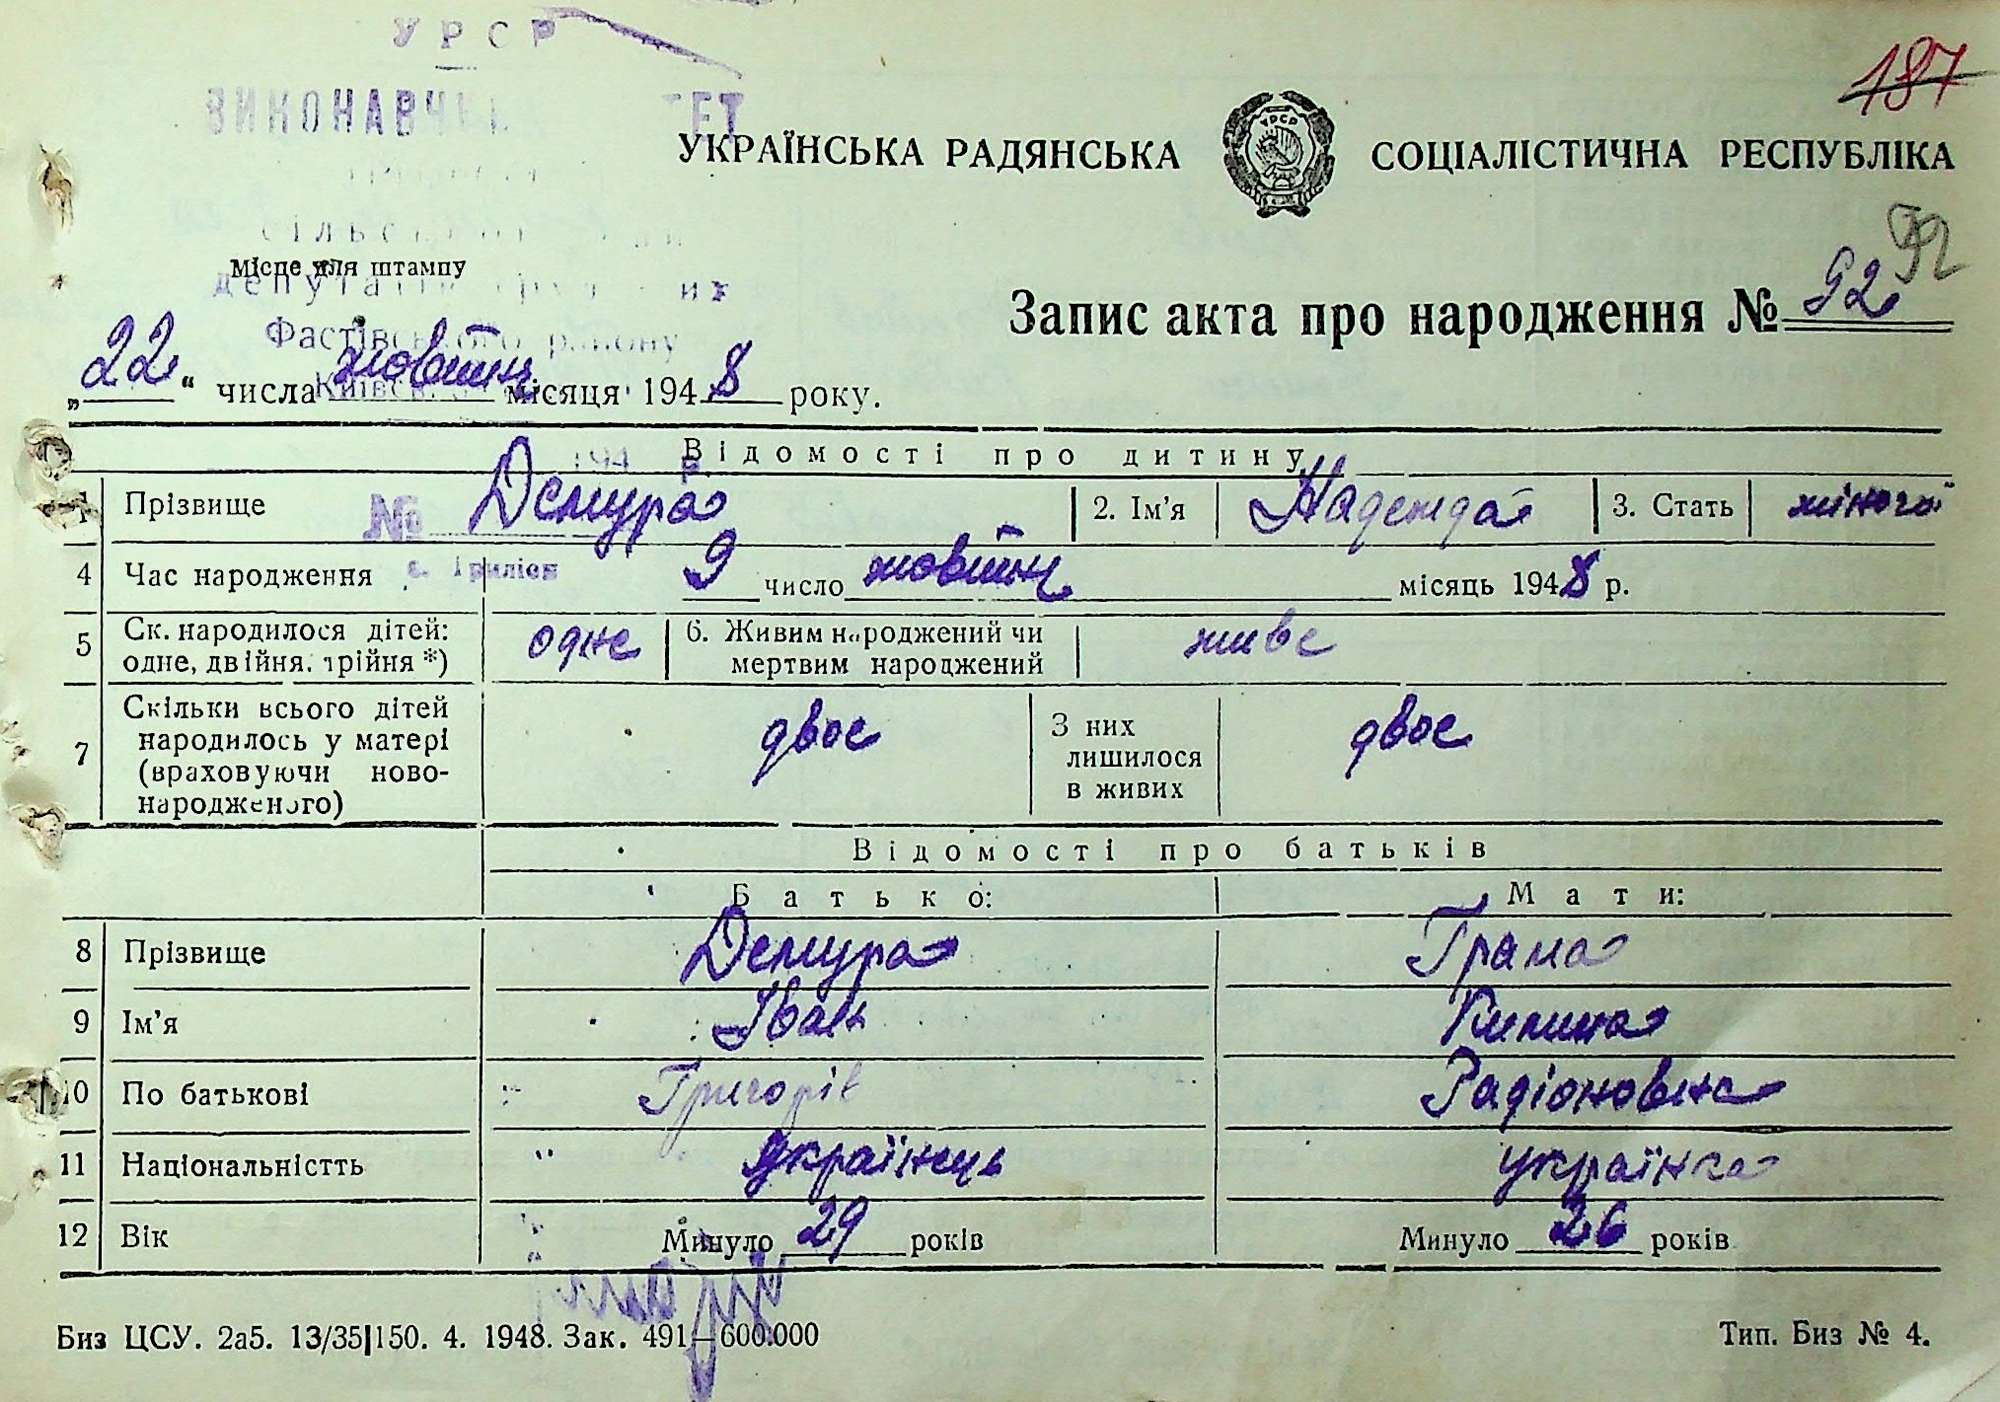 УРСР
187
УКРАЇНСЬКА РАДЯНСЬКА СОЦІАЛІСТИЧНА РЕСПУБЛІКА
Місце для штампу
Фастівського району
92
Запис акта про народження № 92
„22“ числа жовтня місяця 1948 року.
Відомості про дитину
1 Прізвище Демура 2. Ім'я Надежда 3. Стать жіноча
№
4 Час народження 9 число жовтня місяць 1948 р.
5 Ск. народилося дітей: одне, двійня, трійня *) одне 6. Живим народжений чи мертвим народжений живе
7 Скільки всього дітей народилось у матері (враховуючи ново-народженого) двое З них лишилося в живих двое
Відомості про батьків
Батько: Мати:
8 Прізвище Демура Грама
9 Ім'я Іван Килина
10 По батькові Григорів Радіоновна
11 Національністть українець українка
12 Вік Минуло 29 років Минуло 26 років
Биз ЦСУ. 2а5. 13/35|150. 4. 1948. Зак. 491—600.000 Тип. Биз № 4.